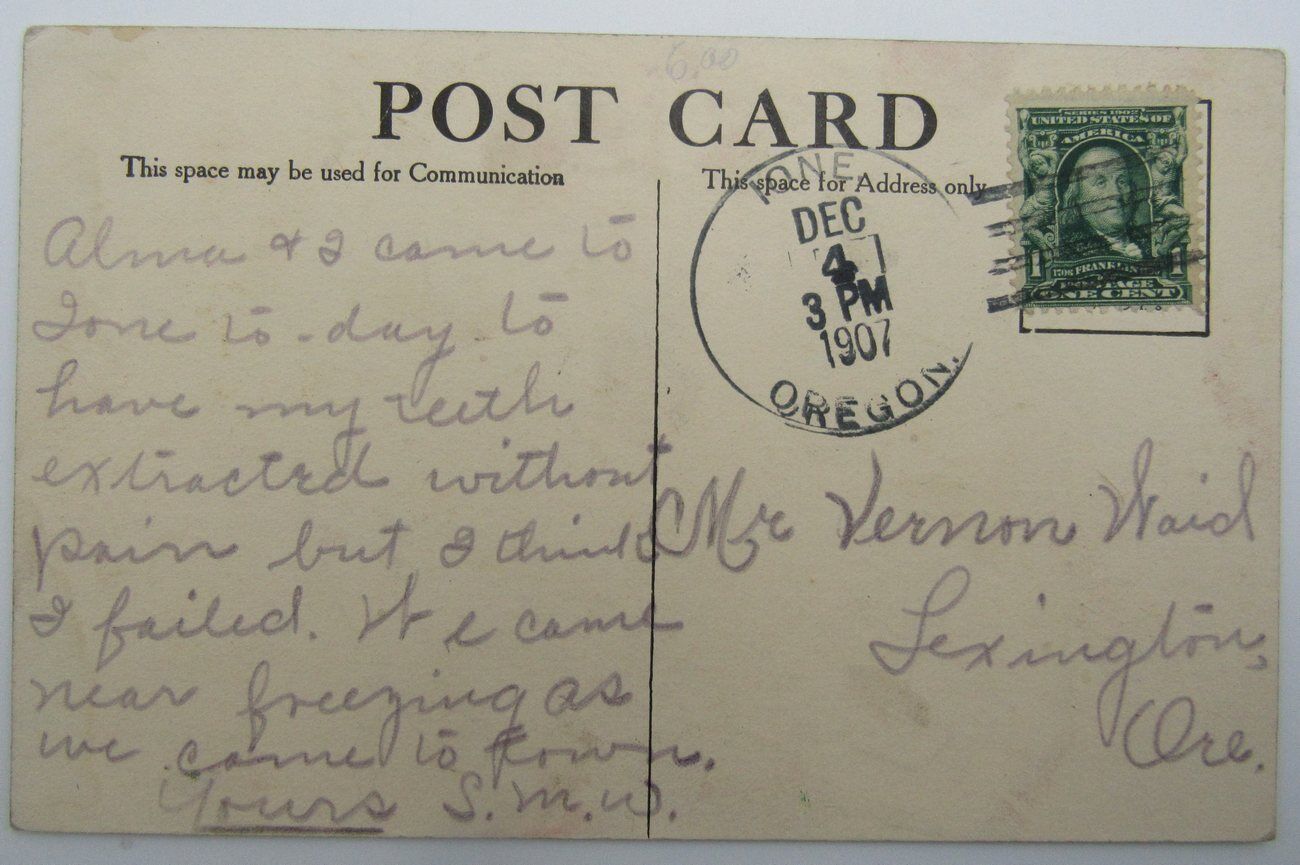 6.00
POST CARD
This space may be used for Communication
This space for Address only
SERIES 1902
UNITED STATES OF
AMERICA
1 FRANKLIN 1
POSTAGE
ONE CENT
IONE,
DEC
4
3 PM
1907
OREGON.
Alma & I came to
Ione to-day to
have my teeth
extracted without
pain but I think
I failed. We came
near freezing as
we came to town.
Yours S.M.W.
Mr Vernon Waid
Lexington,
Ore.